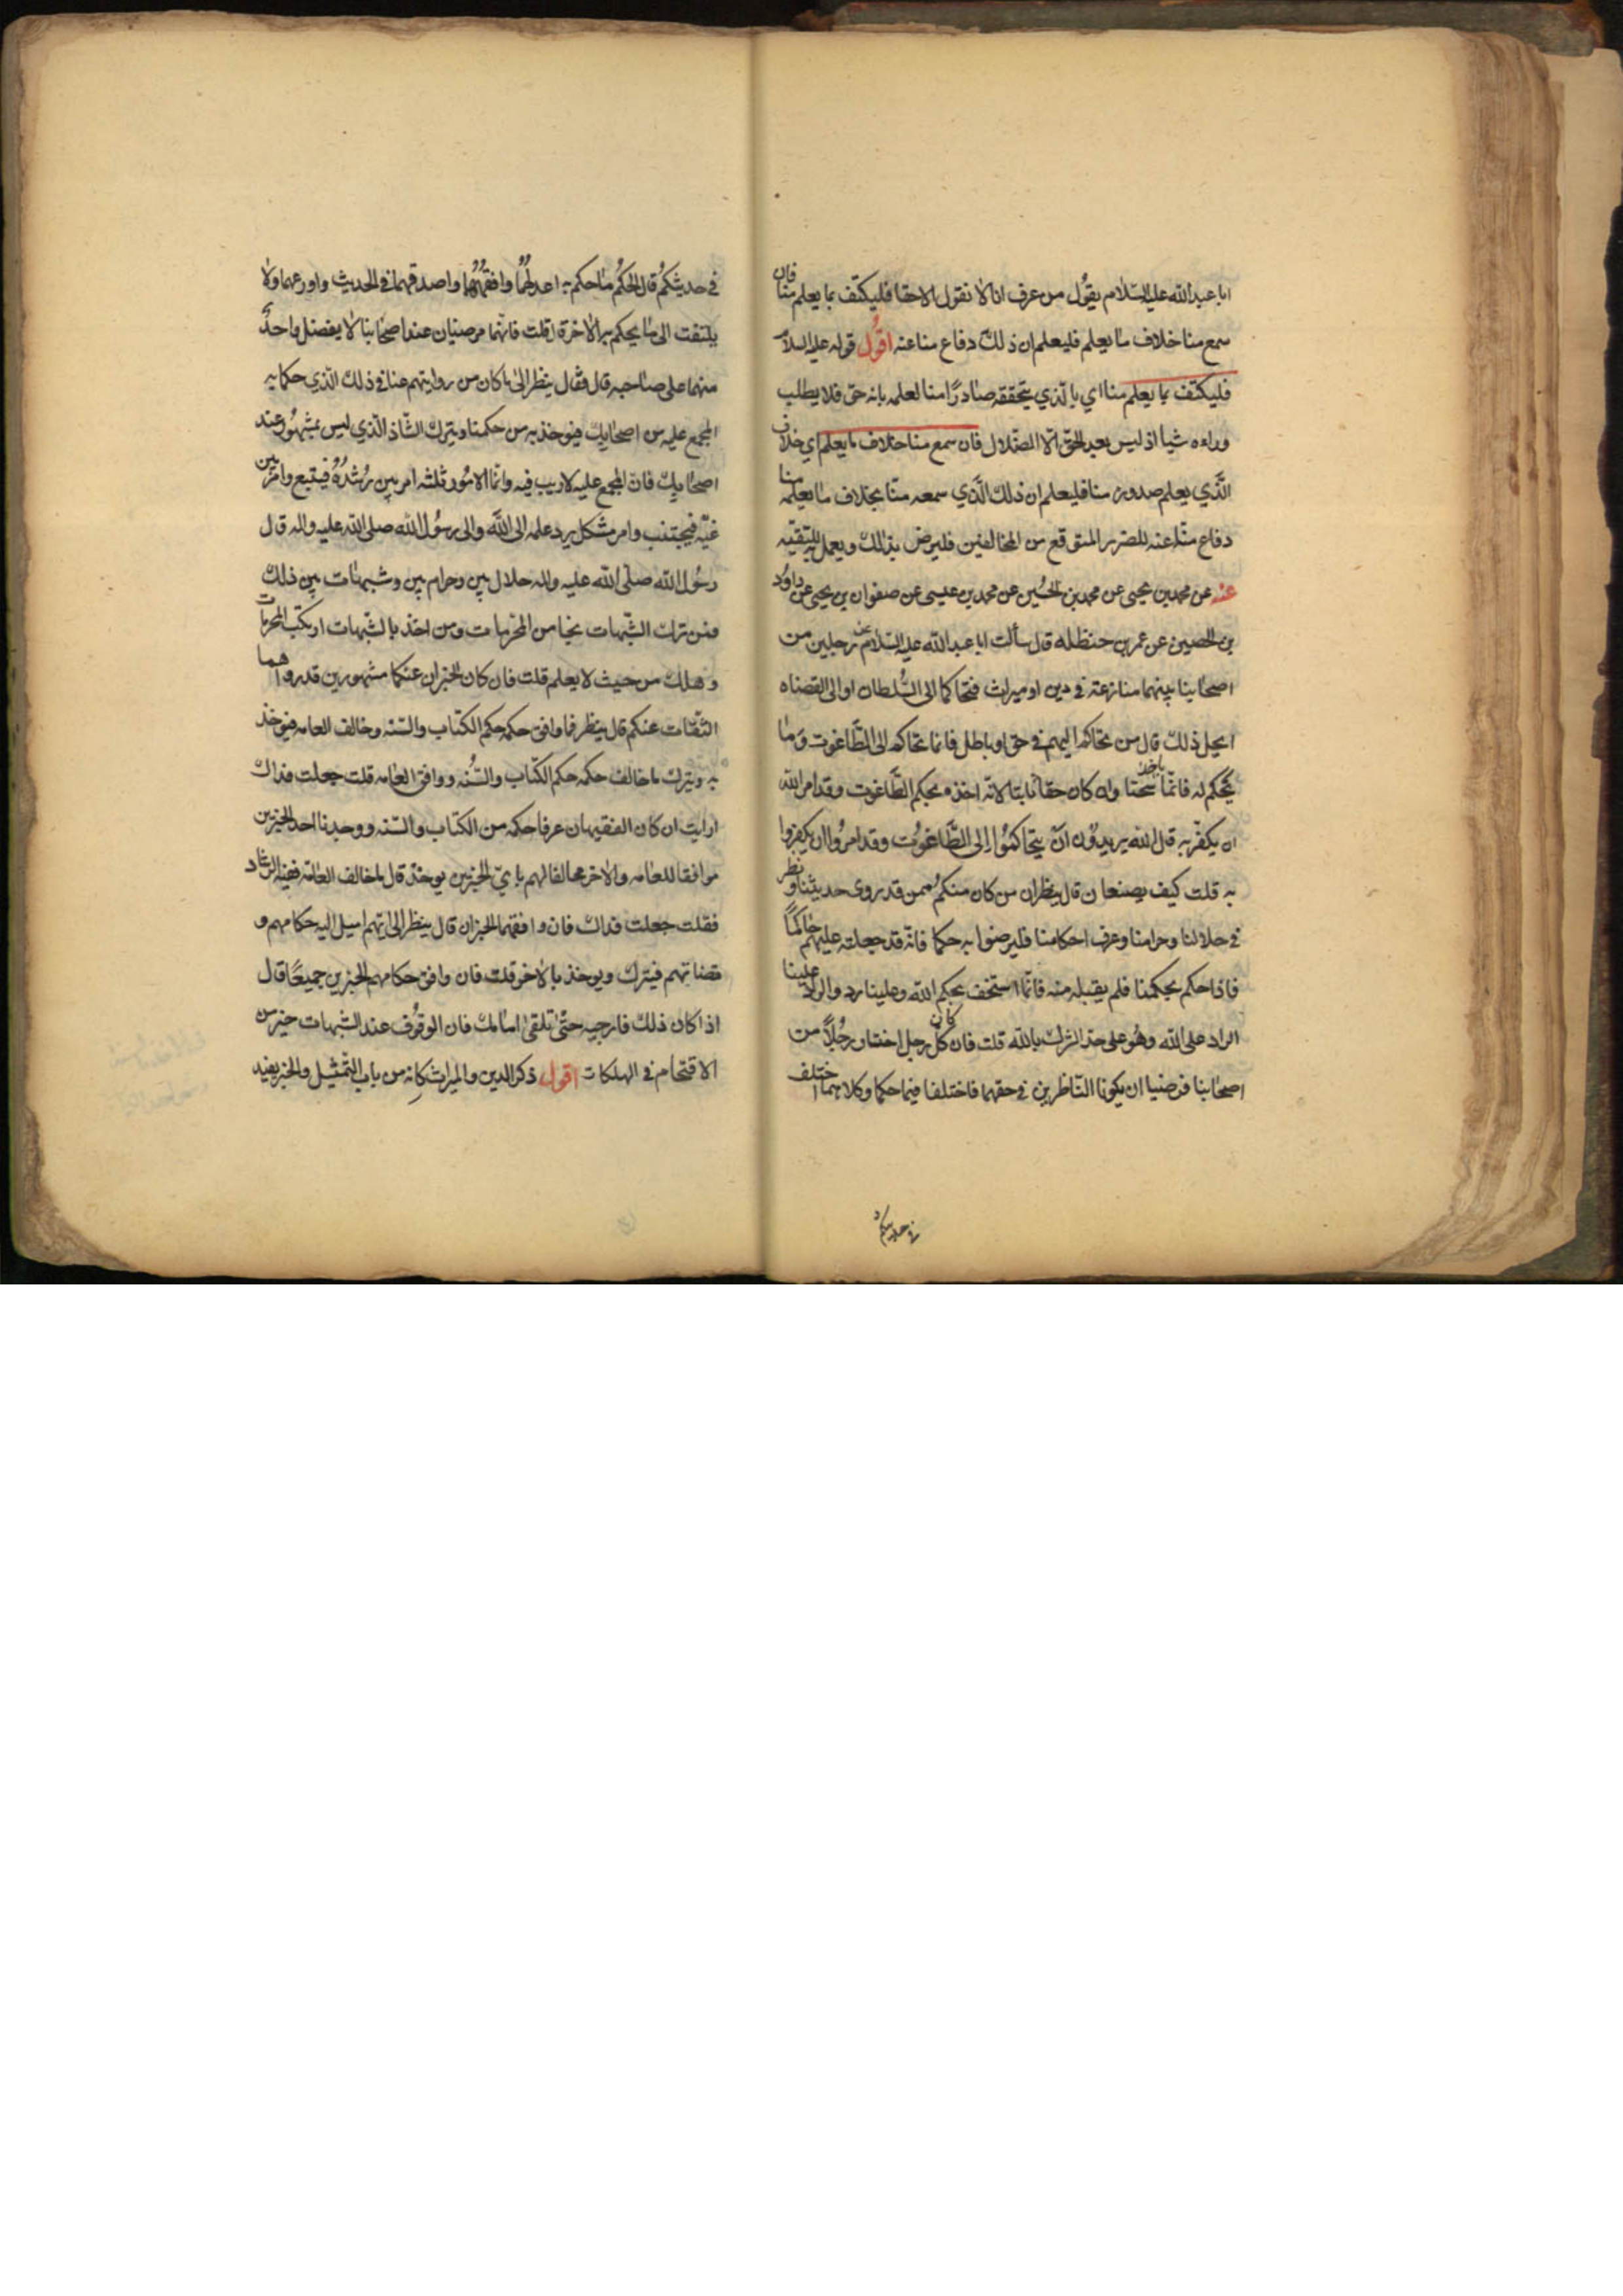 ابا عبد الله عليه السلام يقول من عرف انا لا نقول الا حقا فليكتف بما يعلم منا فان
سمع منا خلاف ما يعلم فليعلم ان ذلك دفاع منا عنه اقول قوله عليه السلام
فليكتف بما يعلم منا اي بالذي يتحققه صادرًا منا لعلمه بانه حق فلا يطلب
وراءه شيا اذ ليس بعد الحق الا الضلال فان سمع منا خلاف ما يعلم اي خلاف
الذي يعلم صدوره منا فليعلم ان ذلك الذي سمعه منّا بخلاف ما يعلمه منا
دفاع منّا عنه للضرر المتوقع من المخالفين فليرض بذلك ويعمل به للتقيّه
عنه عن محمد بن يحيى عن محمد بن الحسين عن محمد بن عيسى عن صفوان بن يحيى عن داوُد
بن الحصين عن عمر بن حنظله قال سألت ابا عبد الله عليه السلام عن رجلين من
اصحابنا بينهما منازعته في دين او ميراث فتحاكما الى السُّلطان او الى القضاه
ايحل ذلك قال من تحاكم اليهم في حق او باطل فانما تحاكم الى الطَّاغوت وَما
يحكم له فانّما ياخذ سحتا وان كان حقا ثابتا لانّه اخذه بحكم الطَّاغوت وقد امر الله
ان يكفر به قال الله يريدُون انْ يتحاكمُوا اِلى الطَّاغوُت وقد امروُا ان يكفروا
به قلت كيف يصنعان قال ينظران من كان منكمُ ممن قد روى حديثنا ونظر
في حلالنا وحرامنا وعرف احكامنا فليرضوا به حكما فانّه قد جعلته عليهم حاكمًا
فاذا حكم بحكمنا فلم يقبله منه فانّما استخف بحكم الله وعلينا رد والراد علينا
الراد على الله وهُو على حد الشرك بالله قلت فان كان كلّ رجل اختار رجُلاً من
اصحابنا فرضيا ان يكونا النّاظرين في حقهما فاختلفا فيما حكما وكلاهما اختلف
في حديثكم
في حديثكمُ قال الحكمُ ما حكم به اعدلهُمُا وافقهُهُما واصدقهما في الحديث واورعهما ولا
يلتفت الى ما يحكم به الاخرة قلت فانّهما مرضيان عند اصحابنا لا يفضل واحدٌ
منهما على صاحبه قال فقال ينظر الى ما كان من روايتهم عنا في ذلك الّذي حكما به
المجمع عليه من اصحابك فيوخذ به من حكمنا ويترك الشّاذ الّذي ليس بمشهُور عند
اصحابك فانّ المجمع عليه لاريب فيه وانّما الامُور ثلثه امر بين رُشدُهُ فيتبع وامر بين
غيّه فيجتنب وامر مشكل يرد علمه الى اللَّه والى رسُول الله صلى الله عليه واله قال
رسُول الله صلّى الله عليه واله حلال بين وحرام بين وشبهات بين ذلك
فمن ترك الشّبهات نجا من المحرمات ومن اخذ بالشّبهات ارتكب المحرمات
وهلك من حيث لا يعلم قلت فان كان الخبران عنكما مشهورين قد رواهما
الثّقات عنكم قال ينظر فما وافق حكمه حكم الكتاب والسّنه وخالف العامه فيوخذ
به ويترك ما خالف حكمه حكم الكتّاب والسُّنه ووافق العامه قلت جعلت فداك
ارايت ان كان الفقيهان عرفا حكمه من الكتاب والسّنه ووجدنا احد الخبرين
موافقا للعامه والاخر مخالفا لهم بايّ الخبرين يوخذ قال ما خالف العامّة ففيه الرشاد
فقلت جعلت فداك فان وافقهما الخبران قال ينظر الى ما يتهم اميل اليه حكامهم و
قضاتهم فيترك ويوخذ بالاخر قلت فان وافق حكامهم الخبرين جميعًا قال
اذا كان ذلك فارجيه حتّى تلقى امامك فان الوقوُف عند الشّبهات خير من
الاقتحام في الهلكات اقول ذكر الدين والميراث كانه من باب التّمثيل والخبر يفيد